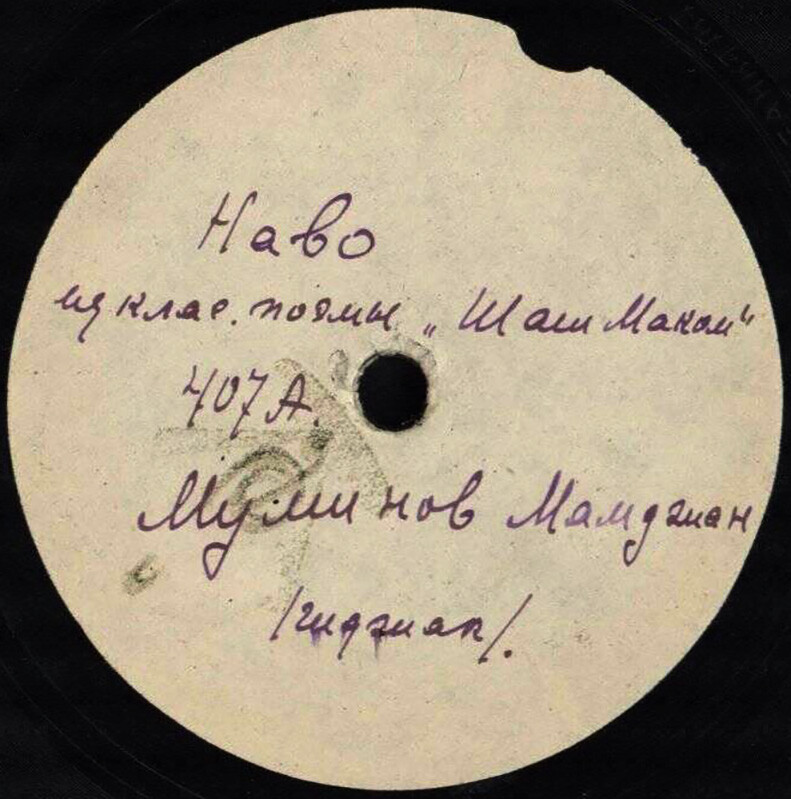 Наво
из клас. поэмы „Шаш Маком“
407 А.
Муминов Мамджан
/гиджак/.